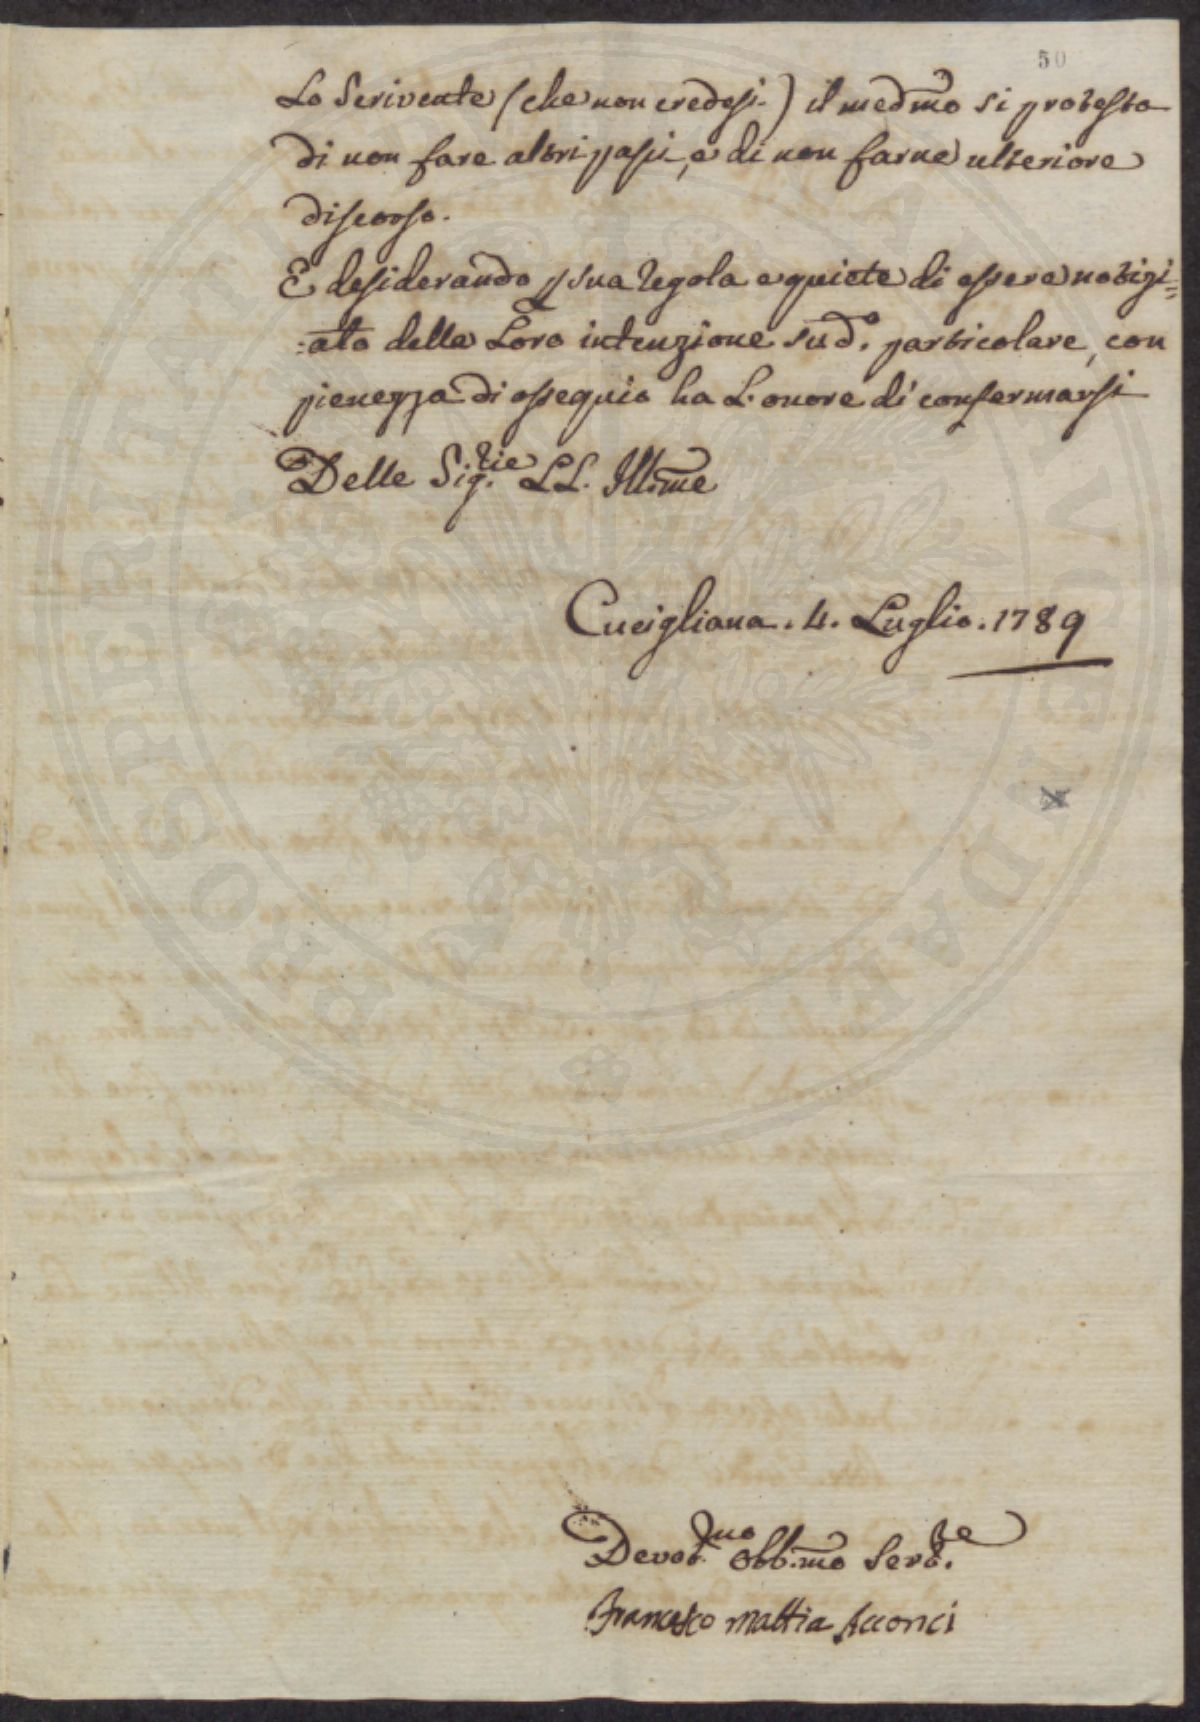 50
Lo Scrivente (che non credesi.) il medmo si protesta
di non fare altri passi, e di non farne ulteriore
discorso.
E desiderando p sua regola e quiete di essere notizi=
:ato della Loro intenzione sud.a particolare, con
pienezza di ossequio ha L'onore di confermarsi
Delle Sig.rie LL. Illme
Cucigliana. 4. Luglio. 1789
Devot.mo Obb.mo Serv.re
Francesco Mattia Acconci